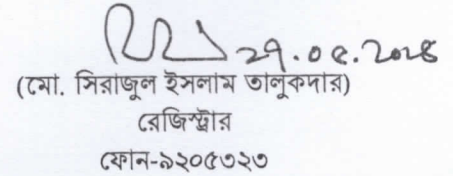 ২৭.০৫.২০২৪
(মো. সিরাজুল ইসলাম তালুকদার)
রেজিস্ট্রার
ফোন-৯২০৫৩২৩